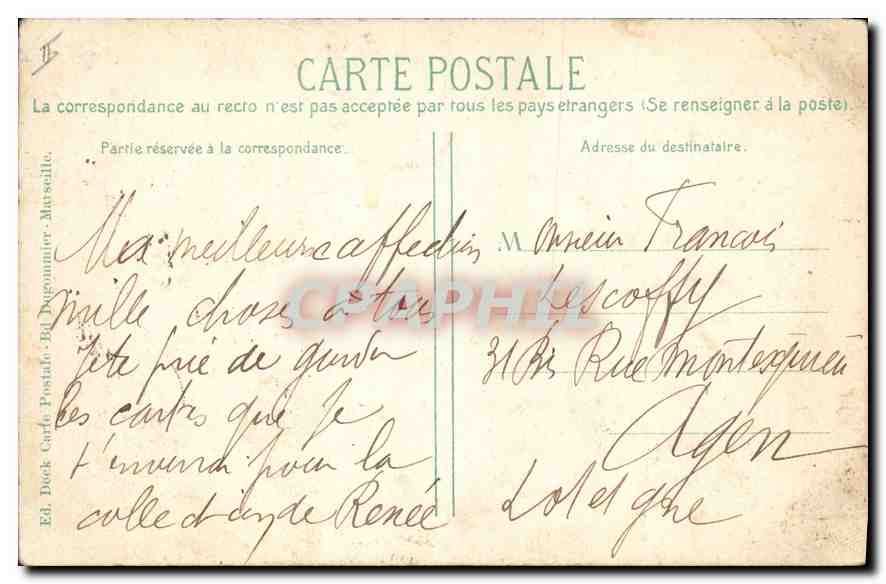 II
CARTE POSTALE
La correspondance au recto n'est pas acceptée par tous les pays etrangers (Se renseigner à la poste).
Partie réservée à la correspondance.
Adresse du destinataire.
Ed. Dock Carte Postale - Bd Dugommier - Marseille.
Ma meilleure affection
mille choses à tous
je te prie de garder
les cartes que je
t'enverrai pour la
collection de Renée
M onsieur Francois
Lescoffy
31 Bis Rue Montesquieu
Agen
Lot et gne
CPAPHIL